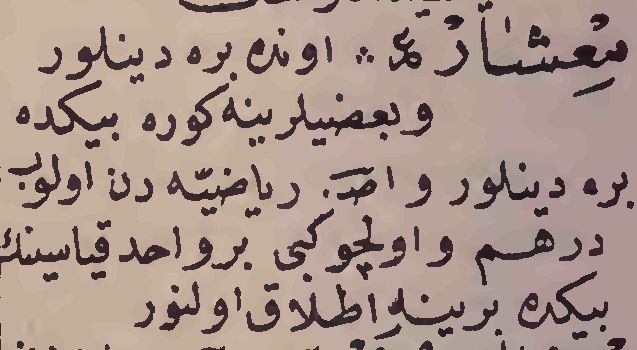 مِعْشَارْ ع ∴ اونده بره دینلور
وبعضیلرینه کوره بیکده
بره دینلور و اصـ. ریاضیّه دن اولوب
درهم و اولچو کبی بر واحد قیاسینك
بیکده برینه اطلاق اولنور